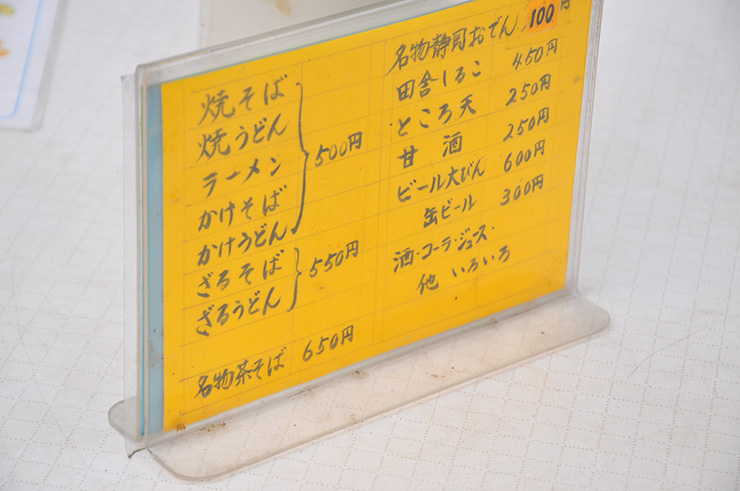 焼そば
焼うどん
ラーメン
かけそば
かけうどん
500円
ざるそば
ざるうどん
550円
名物茶そば 650円
名物静岡おでん 100円
田舎しるこ 450円
ところ天 250円
甘酒 250円
ビール大びん 600円
缶ビール 300円
酒・コーラ・ジュース・
他 いろいろ